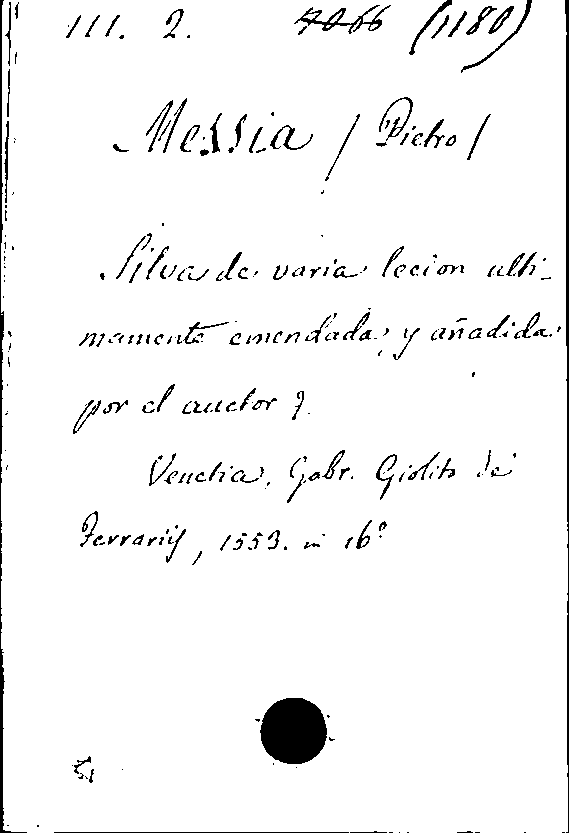 III. 2. 7066 (1180)
Messia / Pietro /
Silva de varia lecion ulti-
mamente emendada, y añadida
por el auctor
Venetia, Gabr. Giolito de
Ferrarij, 1553. in 16º